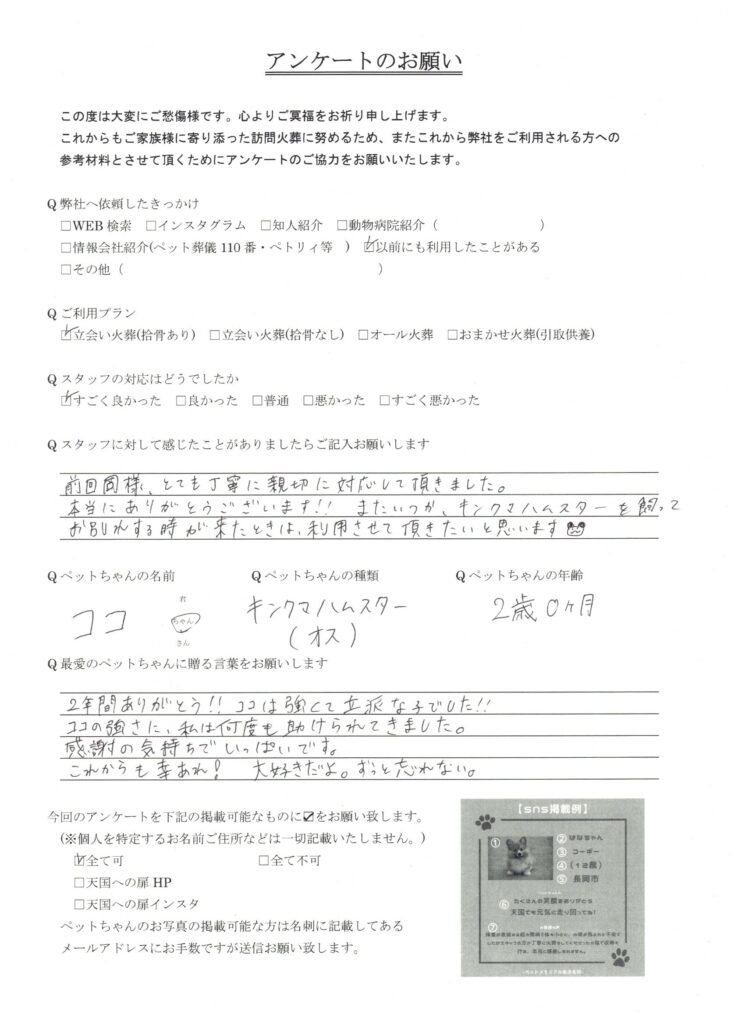 アンケートのお願い
この度は大変にご愁傷様です。心よりご冥福をお祈り申し上げます。
これからもご家族様に寄り添った訪問火葬に努めるため、またこれから弊社をご利用される方への
参考材料とさせて頂くためにアンケートのご協力をお願いいたします。
Q 弊社へ依頼したきっかけ
□WEB 検索 □インスタグラム □知人紹介 □動物病院紹介（ ）
□情報会社紹介(ペット葬儀 110 番・ペトリィ等 ) ☑以前にも利用したことがある
□その他（ ）
Q ご利用プラン
☑立会い火葬(拾骨あり) □立会い火葬(拾骨なし) □オール火葬 □おまかせ火葬(引取供養)
Q スタッフの対応はどうでしたか
☑すごく良かった □良かった □普通 □悪かった □すごく悪かった
Q スタッフに対して感じたことがありましたらご記入お願いします
前回同様、とても丁寧に親切に対応して頂きました。
本当にありがとうございます!! またいつか、キンクマハムスターを飼って
お別れする時が来たときは、利用させて頂きたいと思います
Q ペットちゃんの名前 Q ペットちゃんの種類 Q ペットちゃんの年齢
ココ 君 ちゃん さん キンクマハムスター (オス) 2歳0ヶ月
Q 最愛のペットちゃんに贈る言葉をお願いします
2年間ありがとう!! ココは強くて立派な子でした!!
ココの強さに、私は何度も助けられてきました。
感謝の気持ちでいっぱいです。
これからも幸あれ! 大好きだよ。ずっと忘れない。
今回のアンケートを下記の掲載可能なものに☑をお願い致します。
(※個人を特定するお名前ご住所などは一切記載いたしません。)
☑全て可 □全て不可
□天国への扉 HP
□天国への扉インスタ
ペットちゃんのお写真の掲載可能な方は名刺に記載してある
メールアドレスにお手数ですが送信お願い致します。
【sns掲載例】
① ② はなちゃん
③ コーギー
④ (12歳)
⑤ 長岡市
⑥ たくさんの笑顔をありがとう
天国でも元気に走り回ってね!
⑦